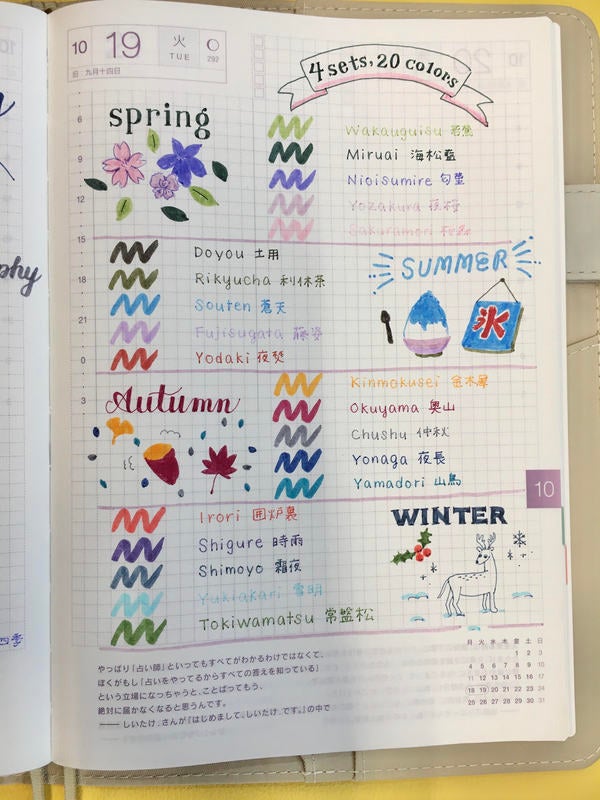 10 19 火 TUE 292
旧 九月十四日
4 sets, 20 colors
spring
Wakauguisu 若鶯
Miruai 海松藍
Nioisumire 匂菫
Yozakura 夜桜
Sakuramori 桜森
Doyou 土用
Rikyucha 利休茶
Souten 蒼天
Fujisugata 藤姿
Yodaki 夜焚
SUMMER
氷
Autumn
Kinmokusei 金木犀
Okuyama 奥山
Chushu 仲秋
Yonaga 夜長
Yamadori 山鳥
10
Irori 囲炉裏
Shigure 時雨
Shimoyo 霜夜
Yukiakari 雪明
Tokiwamatsu 常盤松
WINTER
6
9
12
15
18
21
0
3
やっぱり「占い師」といってもすべてがわかるわけではなくて、
ぼくがもし「占いをやってるからすべての答えを知っている」
という立場になっちゃうと、ことばってもう、
絶対に届かなくなると思うんです。
── しいたけ.さんが『はじめまして。しいたけ.です。』の中で
月 火 水 木 金 土 日
1 2 3
4 5 6 7 8 9 10
11 12 13 14 15 16 17
18 19 20 21 22 23 24
25 26 27 28 29 30 31
phy
四季